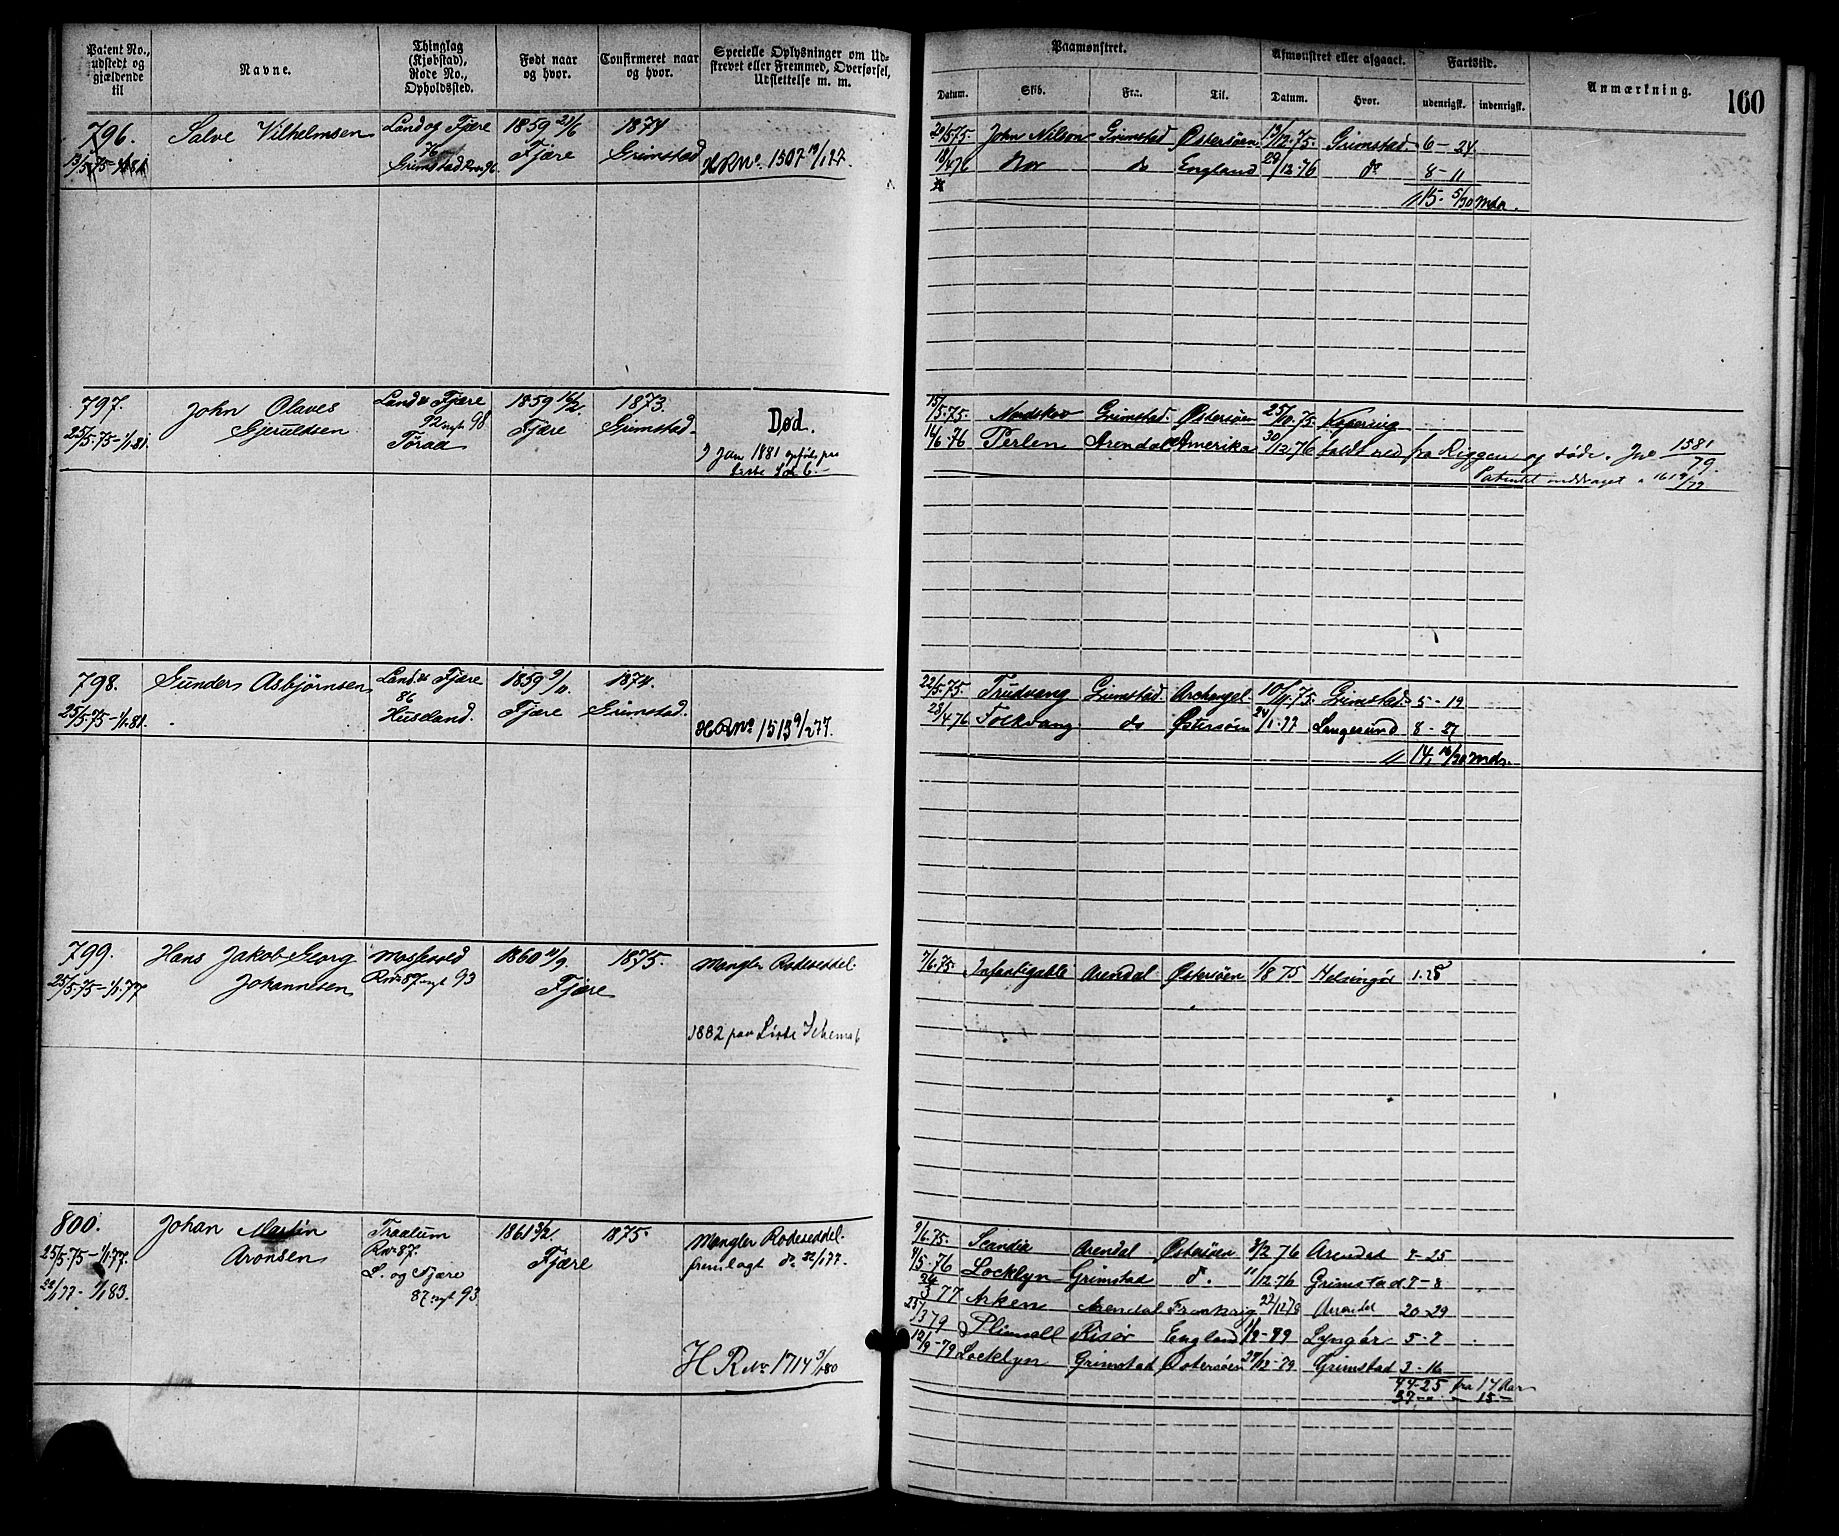 Patent No., udstedt og gjældende til
Navne.
Thinglag (Kjøbstad), Rode No., Opholdssted.
Født naar og hvor.
Confirmeret naar og hvor.
Specielle Oplysninger om Udskrevet eller Fremmed, Overførsel, Udslettelse m. m.
Paamønstret.
Afmønstret eller afgaaet.
Fartstid.
Anmærkning.
160
Datum.
Skib.
Fra.
Til.
Datum.
Hvor.
udenrigsk.
indenrigsk.
796. Salve Vilhelmsen Land og Fjære 1859 21/6 1874
76 Fjære Grimstad
13/5 75 - 1/1 81 Grimstad H R No. 1507 19/1 77.
20/5 75. John Nilson Grimstad Østersøen 13/12 75. Grimstad 6 - 24
18/4 76 Nor do England 29/12 76 do 8 - 11
15 - 5/30 Mdr.
797. John Olaves Land & Fjære 1859 16/2. 1873.
Gjeruldsen 92 nyt 98 Fjære Grimstad.
25/5 75 - 1/1 81. Toraa
Død.
9 Jan 1881 opført paa
Liste Sch 6.
15/5 75. Grimstad. Østersøen 25/10 75. Kopervig
14/6 76 Perlen Arendal Amerika 30/12 76 faldt ned fra Riggen og døde. Jno 1581/79.
Patentet inddraget
798. Gunder Asbjørnsen Land & Fjære 1859 9/11. 1874.
86 Fjære Grimstad.
25/5 75 - 1/1 81. Huseland. H R No. 1513 9/2 77.
22/5 75. Trudvang Grimstad Archangel 10/11 75. Grimstad 5 - 19
28/4 76 Folkvang do Østersøen 24/1 77 Langesund 8 - 27
14, 16/30 Mdr.
799. Hans Jakob Georg 1860 11/9 1875. Mangler Rodeseddel.
Johannesen Rno 87 nyt 93 Fjære
25/5 75 - 1/1 77
1882 paa Liste Schema 6
7/6 75. Indefatigable Arendal Østersøen 1/8 75 Helsingør 1.28
800. Johan Martin Traalum 1861 3/2. 1875. Mangler Rodeseddel.
Aronsen Rno 87. Fjære fremlagt d. 22/1 77.
25/5 75 - 1/1 77. L. og Fjære
22/1 77 - 1/1 83. 87 nyt 93
H R No. 1714 3/1 80
9/6 75. Scandia Arendal Østersøen 3/2 76 Arendal 7 - 25
4/5 76 Locklyn Grimstad d. 11/12 76 Grimstad 7 - 8
24/3 77 Arken Arendal Frankrig 22/12 78 Arendal 20 - 29
25/3 79 Plimsoll Risør England 1/9 - 79 Lyngør 5 - 7
12/9 - 79 Locklyn Grimstad Østersøen 27/12 - 79 Grimstad 3 - 16
44 - 25 fra 14 Aar
37 - " - 15 -